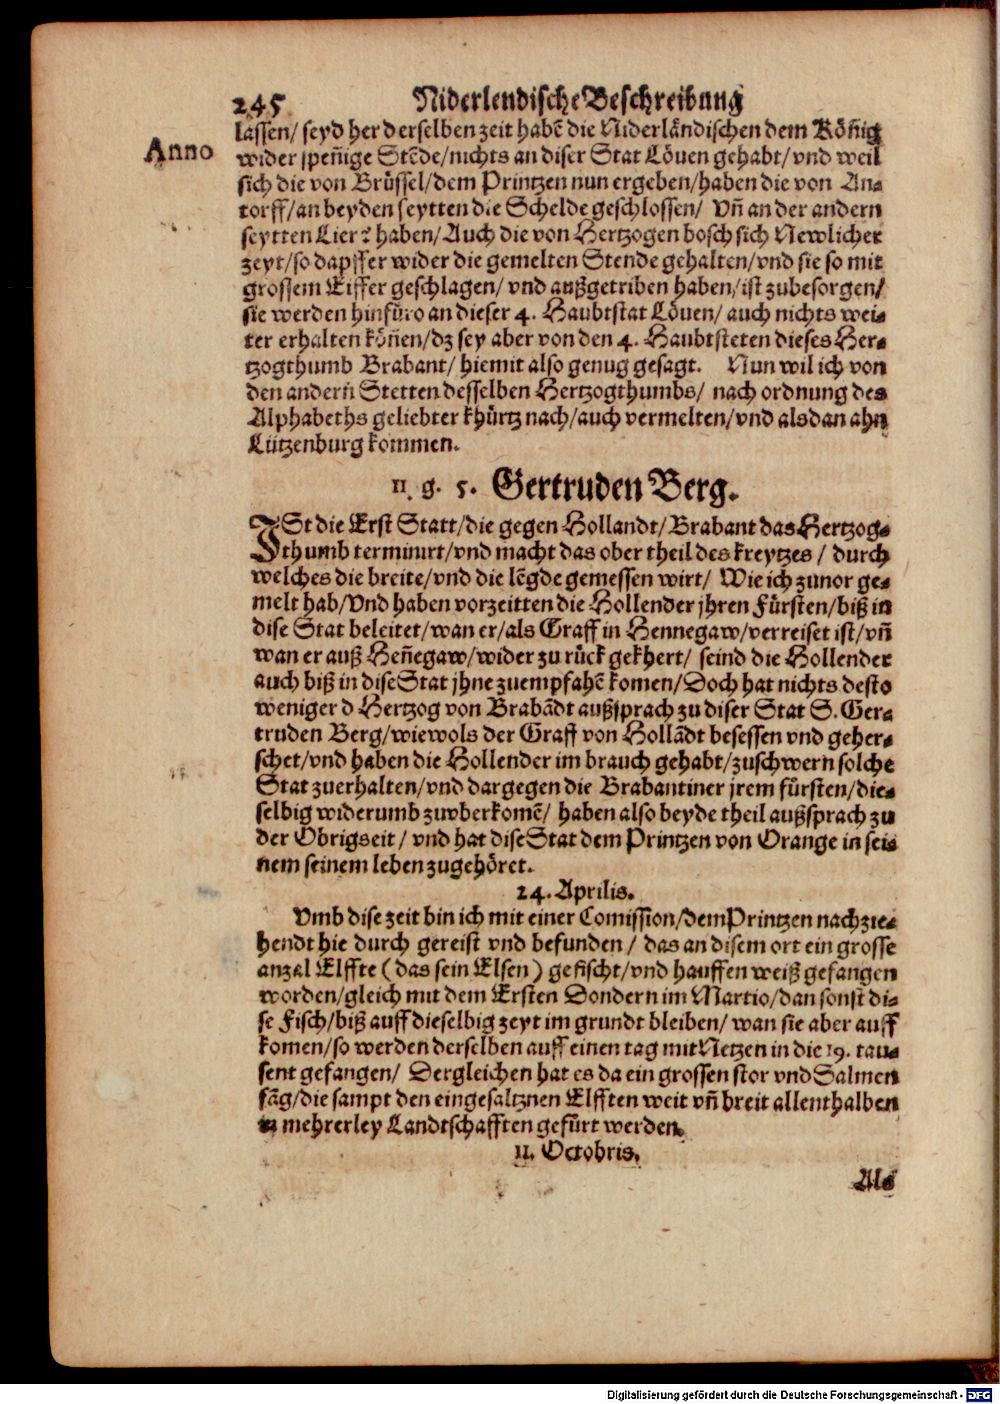 245 Niderlendische Beschreibung
lassen/ seyd her derselben zeit habē die Niderländischen dem Köñig
Anno
wider speñige Stēde/nichts an diser Stat Löuen gehabt/vnd weil
sich die von Brüssel/dem Printzen nun ergeben/haben die von An-
torff/an beyden seytten die Schelde geschlossen/ Vñ an der andern
seytten Lier? haben/Auch die von Hertzogen bosch sich Newlicher
zeyt/so dapffer wider die gemelten Stende gehalten/vnd sie so mit
grossem Eiffer geschlagen/ vnd außgetriben haben/ist zubesorgen/
sie werden hinfüro an dieser 4. Haubtstat Löuen/ auch nichts wei-
ter erhalten köñen/dz sey aber von den 4. Haubtsteten dieses Her-
tzogthumb Brabant/ hiemit also genug gesagt. Nun wil ich von
den andern Stetten desselben Hertzogthumbs/ nach ordnung des
Alphabeths geliebter khürtz nach/auch vermelten/vnd alsdan ahn
Lützenburg kommen.
11. g. 5. Gertruden Berg.
ISt die Erst Statt/die gegen Hollandt/Brabant das Hertzog-
thumb terminirt/vnd macht das ober theil des kreytzes/ durch
welches die breite/vnd die lēgde gemessen wirt/ Wie ich zuuor ge-
melt hab/Vnd haben vorzeitten die Hollender jhren Fürsten/biß in
dise Stat beleitet/wan er/als Graff in Hennegaw/verreiset ist/vñ
wan er auß Heñegaw/wider zu rück gekhert/ seind die Hollender
auch biß in dise Stat jhne zuempfahē komen/Doch hat nichts desto
weniger d Hertzog von Brabādt außsprach zu diser Stat S. Ger-
truden Berg/wiewols der Graff von Hollādt besessen vnd geher-
schet/vnd haben die Hollender im brauch gehabt/zuschwern solche
Stat zuerhalten/vnd dargegen die Brabantiner jrem fürsten/die-
selbig widerumb zuwberkomē/ haben also beyde theil außsprach zu
der Obrigseit/ vnd hat dise Stat dem Printzen von Orange in sei-
nem seinem leben zugehöret.
24. Aprilis.
Vmb dise zeit bin ich mit einer Comission/dem Printzen nachzie-
hendt hie durch gereist vnd befunden/ das an disem ort ein grosse
anzal Elffte (das sein Elsen) gefischt/vnd hauffen weiß gefangen
worden/gleich mit dem Ersten Dondern im Martio/dan sonst di-
se Fisch/biß auff dieselbig zeyt im grundt bleiben/ wan sie aber auff
komen/so werden derselben auff einen tag mit Netzen in die 19. tau-
sent gefangen/ Dergleichen hat es da ein grossen stor vnd Salmen
fāg/die sampt den eingesaltznen Elfften weit vñ breit allenthalben
in mehrerley Landtschafften gefürt werden.
11. Octobris.
Als
Digitalisierung gefördert durch die Deutsche Forschungsgemeinschaft - DFG